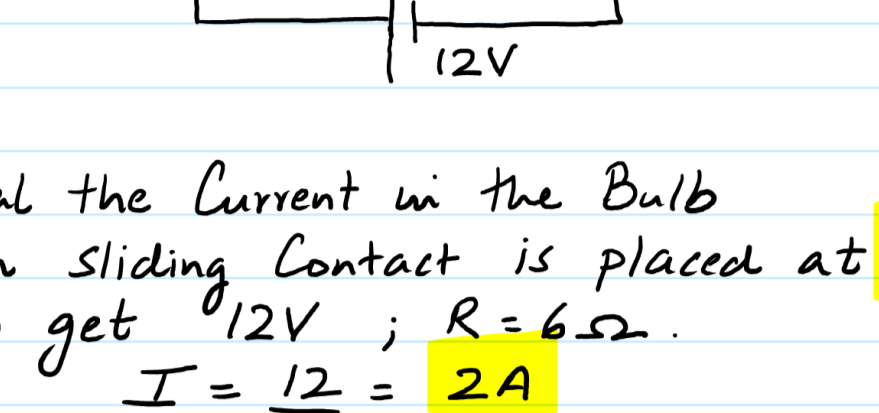 12V
the Current in the Bulb
sliding Contact is placed at
get 12V ; R = 6Ω .
I = 12 = 2A